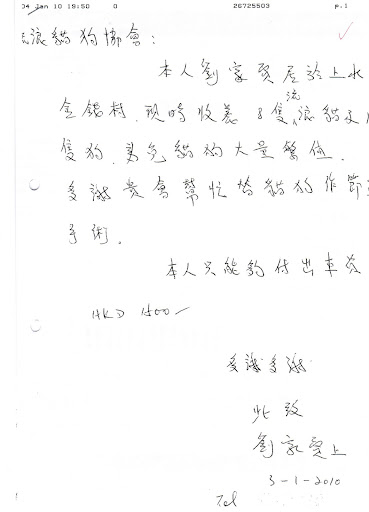 04 Jan 10 19:50 0 26725503 p.1
流浪貓狗協會:
本人劉家賢居於上水
金錢村,現時收養8隻流浪貓及1
隻狗,為免貓狗大量繁殖,
多謝貴會幫忙替貓狗作節
手術.
本人只能夠付出車資
HKD 1500
多謝多謝
此致
劉家賢上
3-1-2010
Tel